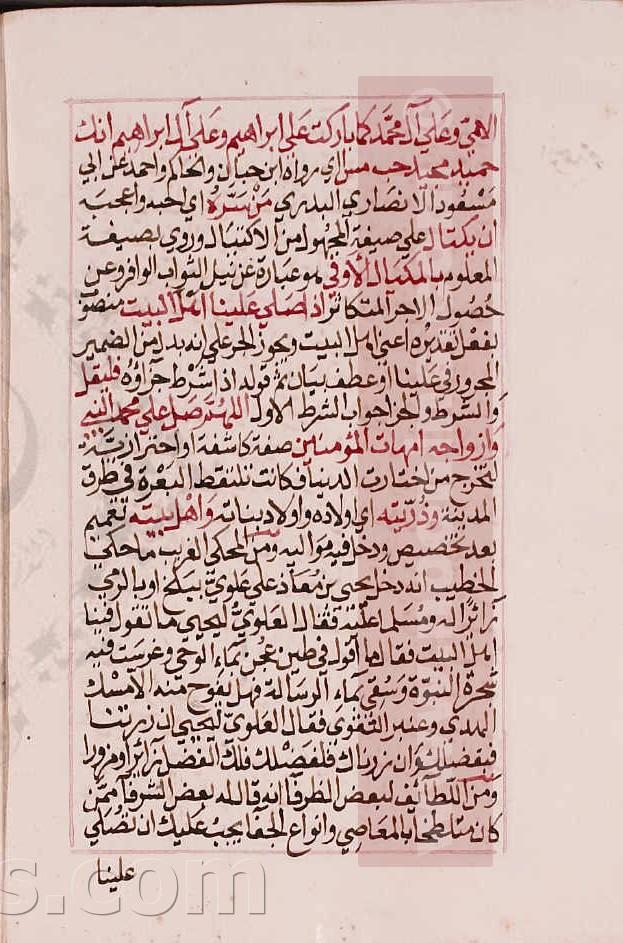 الامي وعلي آل محمد كما باركت علي ابراهيم وعلي آل ابراهيم انك
حميد مجيد حب مس اي رواه ابن حبان والحاكم واحمد عن ابي
مسعود الانصاري البدري من سره اي احبه واعجبه
ان يكتال علي صيغة المجهول من الاكتيال وروي بصيغة
المعلوم بالمكيال الاوفي هو عبارة عن نيل الثواب الوافر وعن
حصول الاجر المتكاثر اذا صلي علينا اهل البيت منصوب
بفعل تقديره اعني اهل البيت ويجوز الجر علي انه بدل من الضمير
المجرور في علينا او عطف بيان ثم قوله اذا شرط جزاؤه فليقل
والشرط والجزا جواب الشرط الاول اللهم صل علي محمد النبي
وازواجه امهات المؤمنين صفة كاشفة او احترازية
لتخرج من اختارت الدنيا فكانت تلتقط البعرة في طرق
المدينة وذريته اي اولاده واولاد بناته واهل بيته تعميم
بعد تخصيص ودخل فيه مواليه ومن المحكي الغريب ما حكي
الخطيب انه دخل يحيي بن معاذ علي علوي ببلخ او بالري
زائرا له ومسلما عليه فقال العلوي ليحيي ما تقول فينا
اهل البيت فقال ما اقول في طين عجن بماء الوحي وغرست فيه
شجرة النبوة وسقي بماء الرسالة فهل يفوح منه الا مسك
الهدي وعنبر التقوي فقال العلوي ليحيي ان زرتنا
فبفضلك وان زرناك فلفضلك فلك الفضل زائرا ومزورا
ومن اللطائف لبعض الظرفا انه قال له بعض الشرفا ممن
كان متلطخا بالمعاصي وانواع الجفا يجب عليك ان تصلي
علينا
s.com